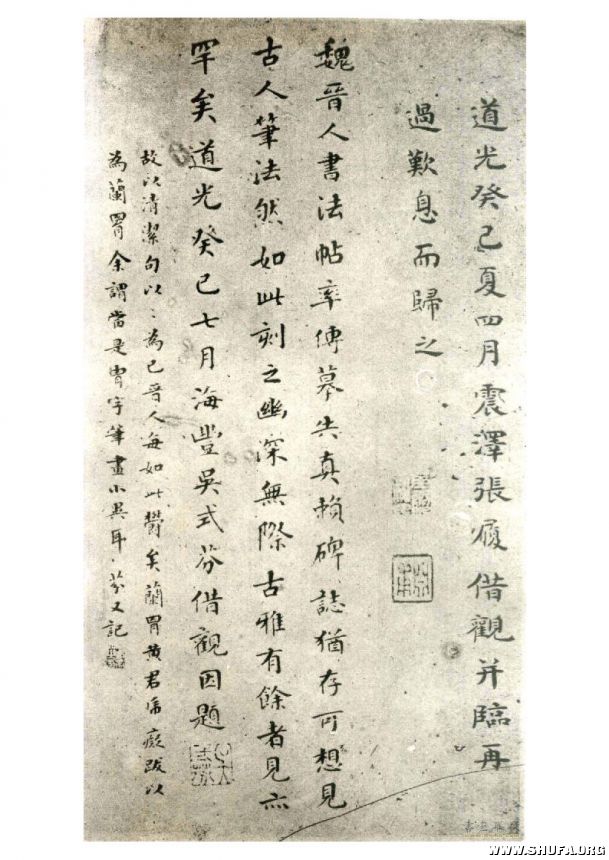 道光癸巳夏四月震澤張履借觀并臨再
過歎息而歸之
魏晉人書法帖率傳摹失真賴碑誌猶存可想見
古人筆法然如此刻之幽深無際古雅有餘者見亦
罕矣道光癸巳七月海豐吳式芬借觀因題
故以清潔句以〻為已晉人每如此欝矣蘭胃黄君〻癡跋以
為蘭胃余謂當是胃字筆畫小異耳·芬又記
WWW.SHUFA.ORG